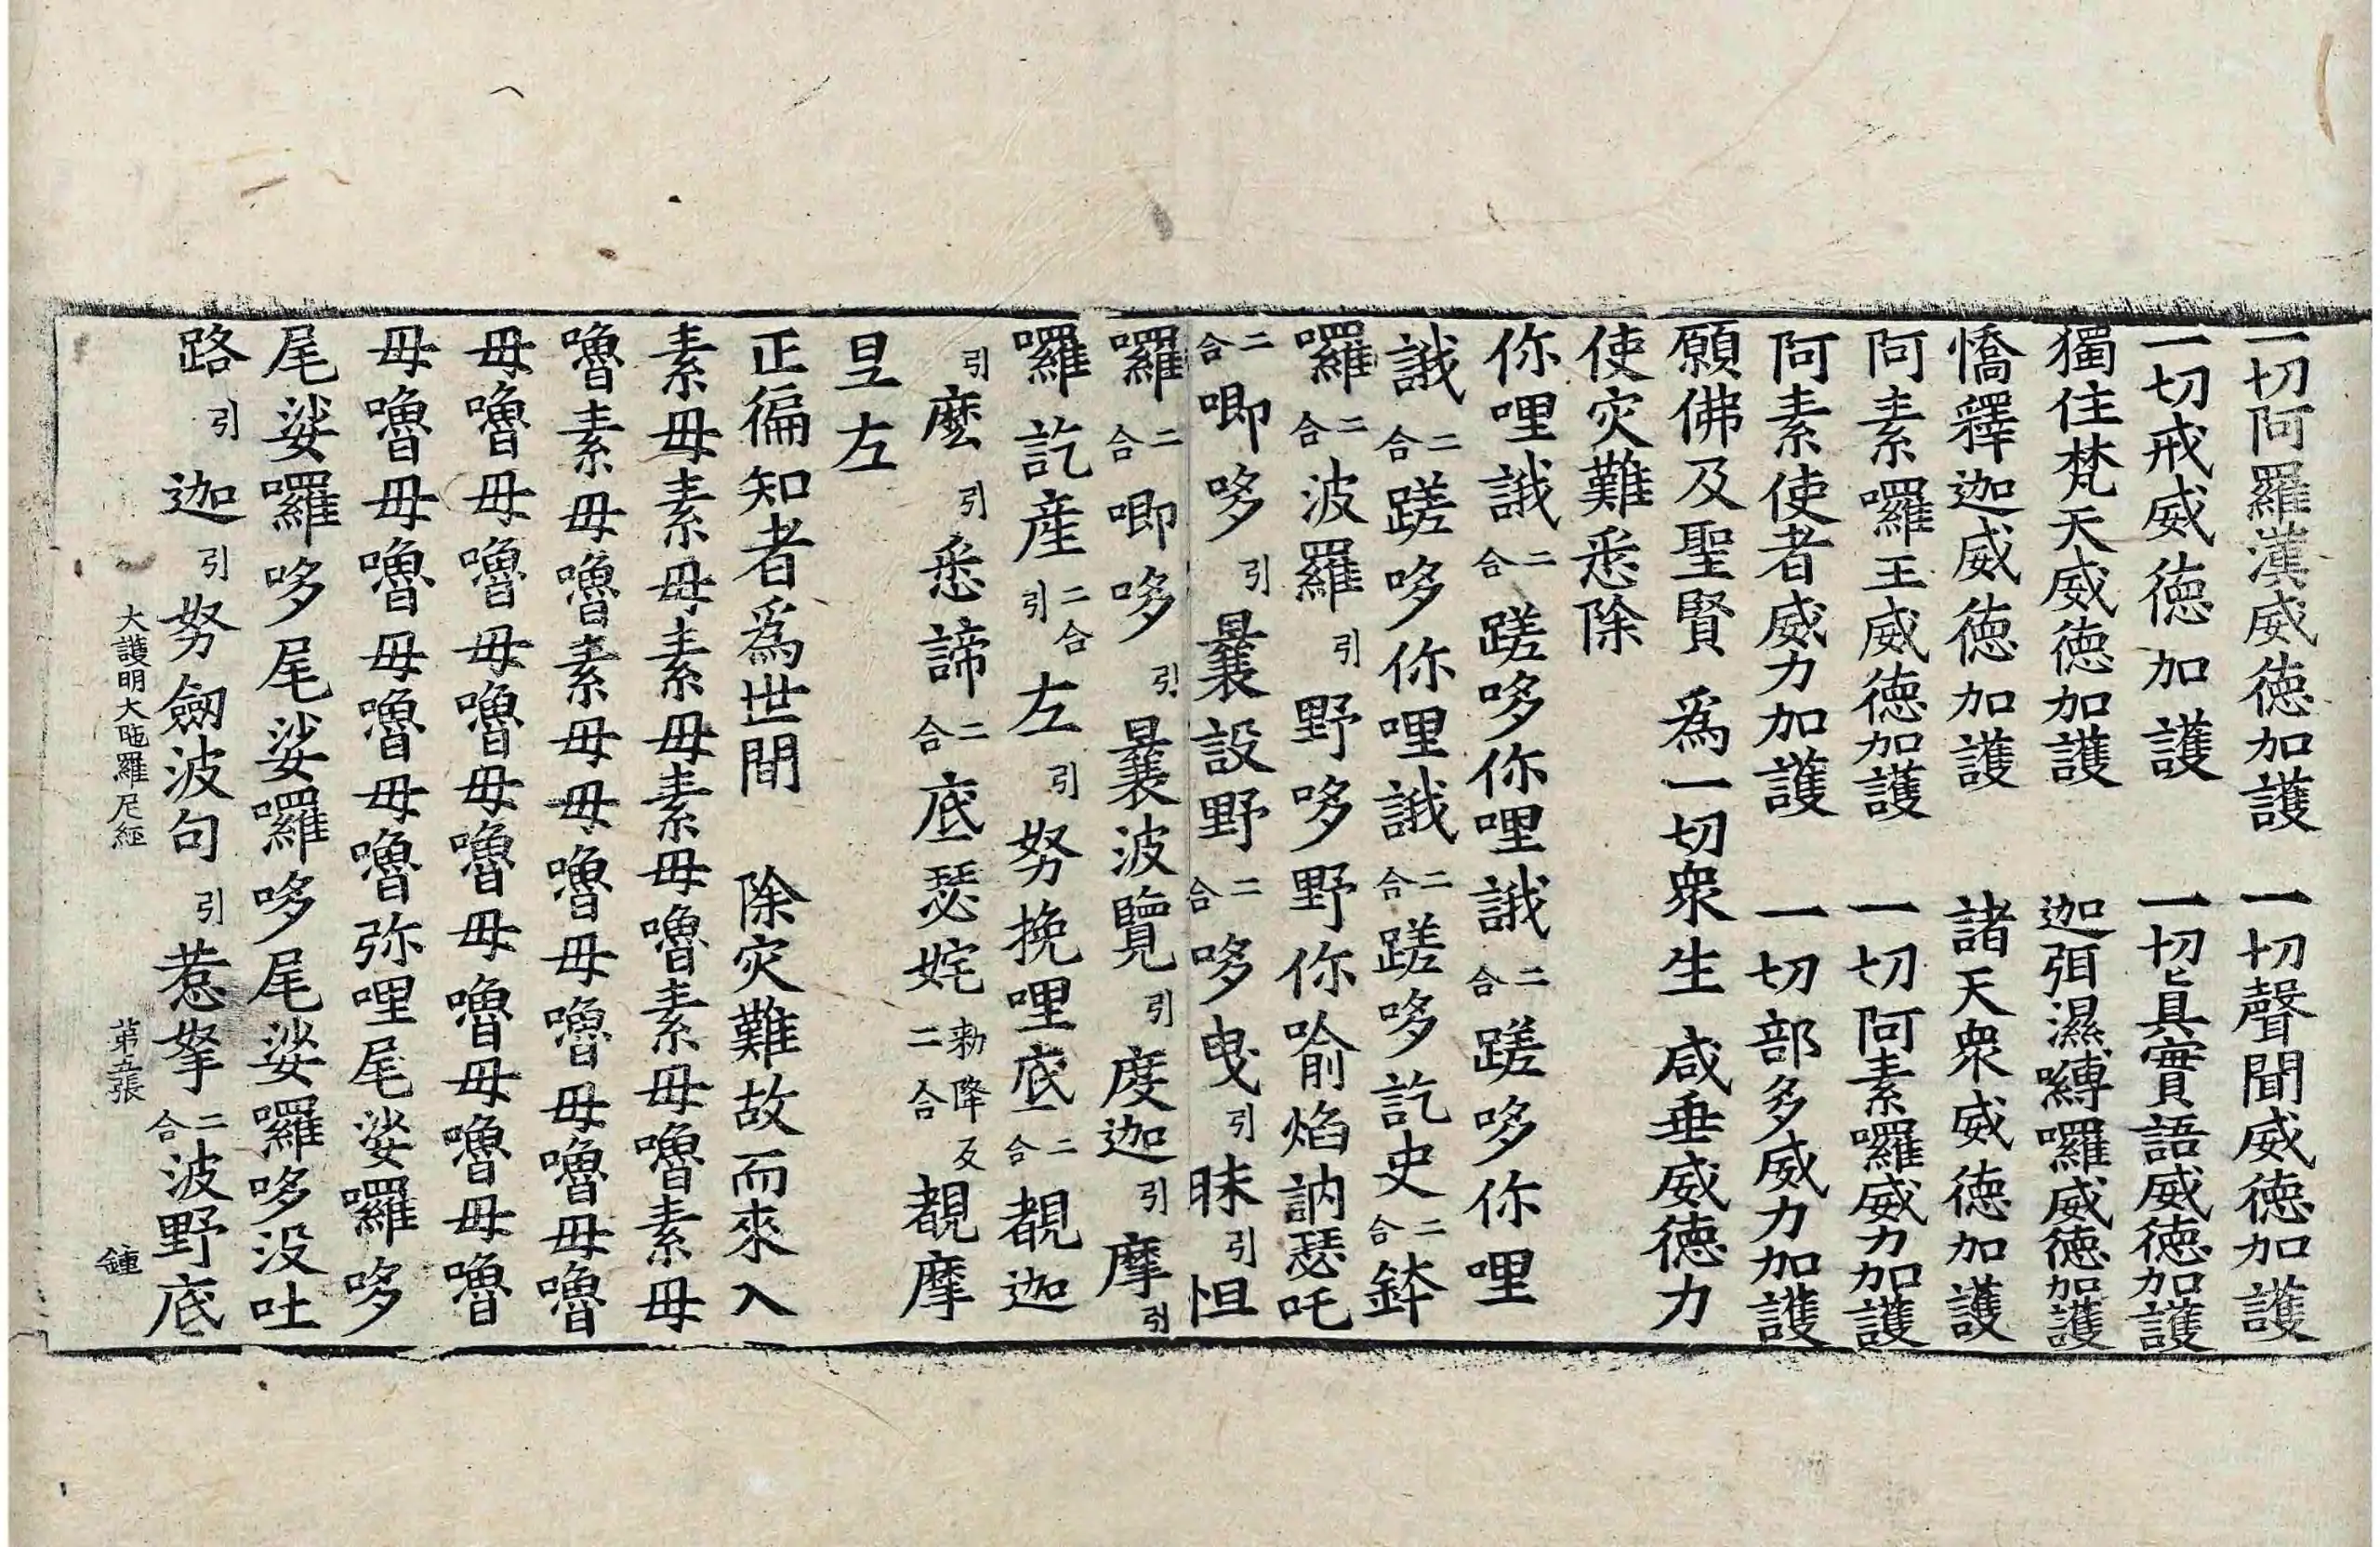 一切阿羅漢威德加護　一切聲聞威德加護
一切戒威德加護　一切眞實語威德加護
獨住梵天威德加護　迦弭濕嚩囉威德加護
憍釋迦威德加護　諸天衆威德加護
阿素囉王威德加護　一切阿素囉威力加護
阿素使者威力加護　一切部多威力加護
願佛及聖賢　爲一切衆生　咸垂威德力
使灾難悉除
你哩誐二合蹉哆你哩誐二合蹉哆你哩
誐二合蹉哆你哩誐二合蹉哆訖史二合鉢
囉二合波羅引野哆野你喻焰訥瑟吒
二合唧哆引曩設野二合哆曳引昧引怛
囉二合唧哆引曩波覽引度迦引摩引
囉訖産二合引左引努挽哩底二合覩迦
引麽引悉諦二合底瑟姹勑降反二合覩摩
𤙖左
正徧知者爲世間　除灾難故而來入
素母素母素母素母素母嚕素母嚕素母
嚕素母嚕素母母嚕母嚕母嚕母嚕
母嚕母嚕母嚕母嚕母嚕母嚕母嚕
母嚕母嚕母嚕母嚕弥哩尾娑囉哆
尾娑囉哆尾娑囉哆尾娑囉哆没吐
路引迦引努劒波句引惹拏二合波野底
大護明大陁羅尼經　苐五張　鍾